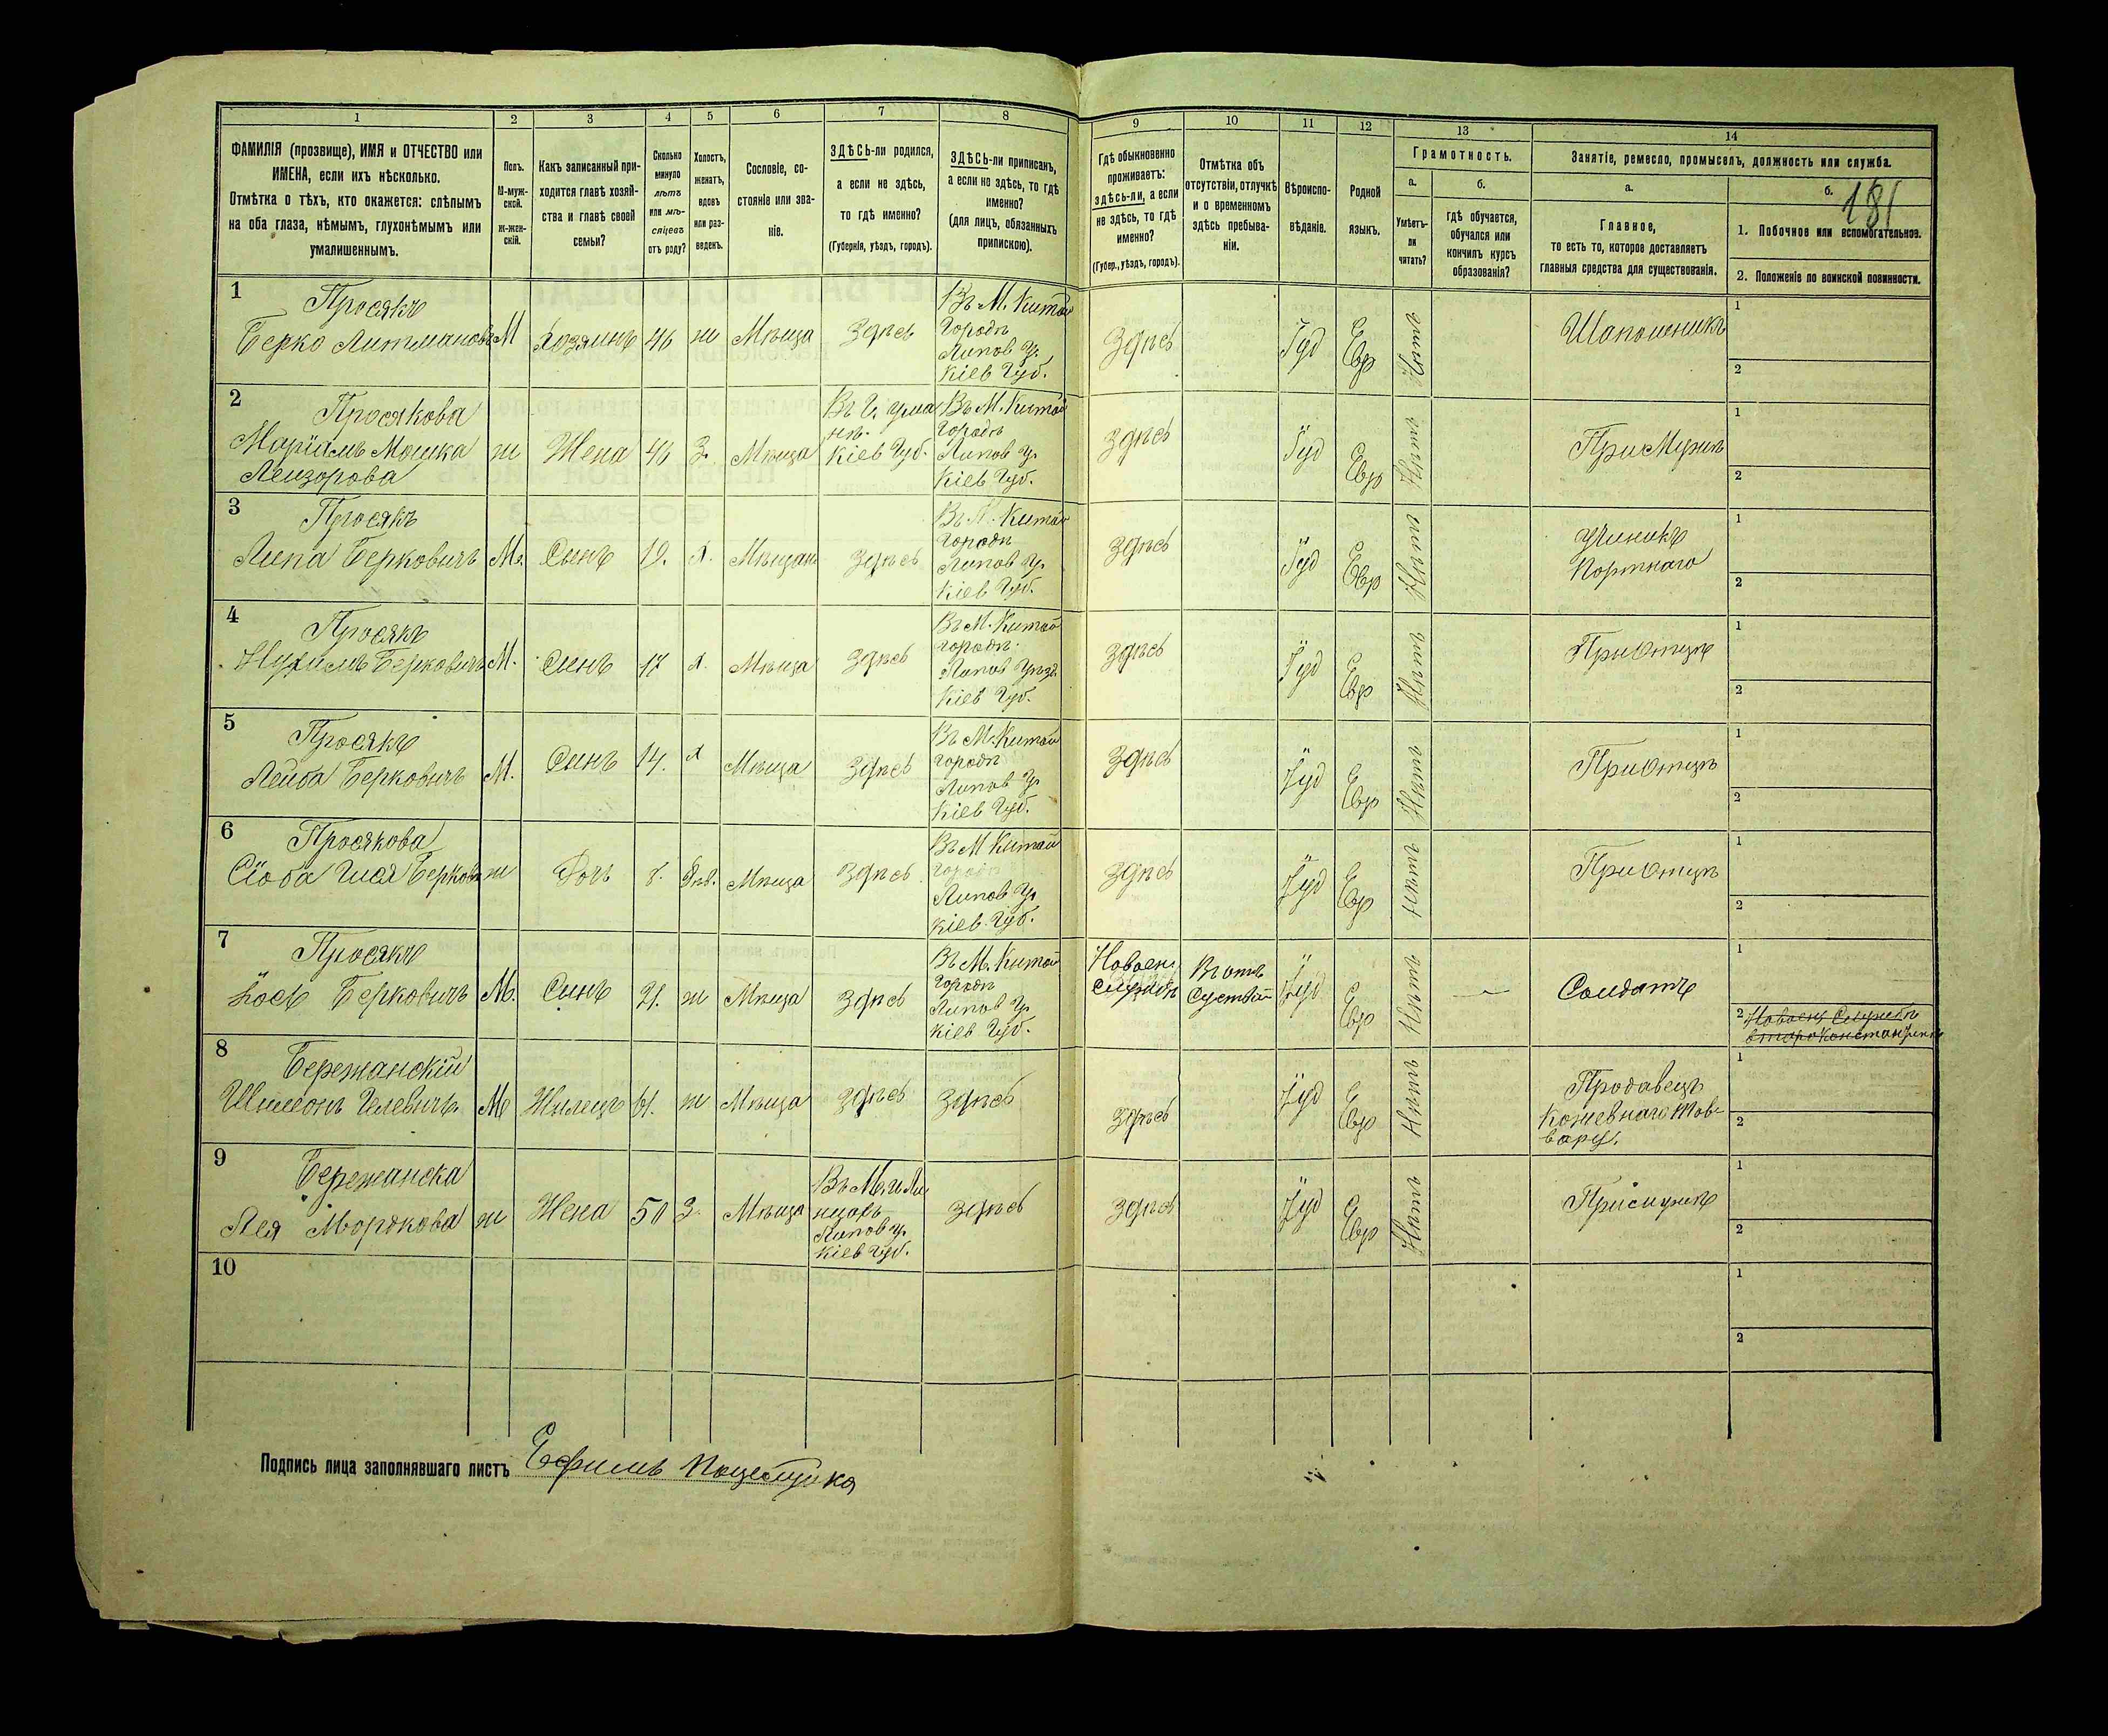 1 2 3 4 5 6 7 8 9 10 11 12 13 14
ФАМИЛІЯ (прозвище), ИМЯ и ОТЧЕСТВО или
ИМЕНА, если ихъ нѣсколько.
Отмѣтка о тѣхъ, кто окажется: слѣпымъ
на оба глаза, нѣмымъ, глухонѣмымъ или
умалишеннымъ.
Полъ.
М-муж-
ской.
ж-жен-
скій.
Какъ записанный при-
ходится главѣ хозяй-
ства и главѣ своей
семьи?
Сколько
минуло
лѣтъ
или мѣ-
сяцевъ
отъ роду?
Холостъ,
женатъ,
вдовъ
или раз-
веденъ.
Сословіе, со-
стояніе или зва-
ніе.
ЗДѢСЬ-ли родился,
а если не здѣсь,
то гдѣ именно?
(Губернія, уѣздъ, городъ).
ЗДѢСЬ-ли приписанъ,
а если не здѣсь, то гдѣ
именно?
(для лицъ, обязанныхъ
припискою).
Гдѣ обыкновенно
проживаетъ:
здѣсь-ли, а если
не здѣсь, то гдѣ
именно?
(Губер., уѣздъ, городъ).
Отмѣтка объ
отсутствіи, отлучкѣ
и о временномъ
здѣсь пребыва-
ніи.
Вѣроиспо-
вѣданіе.
Родной
языкъ.
Грамотность.
а.
Умѣетъ-
ли
читать?
б.
гдѣ обучается,
обучался или
кончилъ курсъ
образованія?
Занятіе, ремесло, промыселъ, должность или служба.
а.
Главное,
то есть то, которое доставляетъ
главныя средства для существованія.
б.
181
1. Побочное или вспомогательное.
2. Положеніе по воинской повинности.
1
Просякъ
Берко Литмановъ
М
Хозяинъ
46
ж
Мѣща
Здѣсь
Въ М. Китай
Городѣ
Липов У.
Кіев Губ.
Здѣсь
Іуд
Евр
Нѣтъ
Шапошникъ
1
2
2
Просякова
Маріямъ Мошка
Леизорова
ж
Жена
46
З.
Мѣща
Въ Г. Ума
нѣ.
Кіев Губ.
Въ М. Китай
Городѣ
Липов У.
Кіев Губ.
Здѣсь
Іуд
Евр
Нѣтъ
При Мужѣ
1
2
3
Просякъ
Липа Берковичъ
М.
Сынъ
19.
х.
Мѣщан
Здѣсь
Въ М. Китай
Городѣ
Липов У.
Кіев Губ.
Здѣсь
Іуд
Евр
Нѣтъ
Учиникъ
Портнаго
1
2
4
Просякъ
Нухимъ Берковичъ
М.
Сынъ
17
х.
Мѣща
Здѣсь
Въ М. Китай
городѣ.
Липов Уѣзд.
Кіев Губ.
Здѣсь
Іуд
Евр
Нѣтъ
При Отцѣ
1
2
5
Просякъ
Лейба Берковичъ
М.
Сынъ
14.
х
Мѣща
Здѣсь
Въ М. Китай
Городѣ
Липов У.
Кіев Губ.
Здѣсь
Іуд
Евр
Нѣтъ
При Отцѣ
1
2
6
Просякова
ж
Дочь
8.
Дѣв.
Мѣща
Здѣсь
Въ М Китай
Городѣ
Липов У.
Кіев. Губ.
Здѣсь
Іуд
Евр
Нѣтъ
При Отцѣ
1
2
7
Просякъ
Іосъ Берковичъ
М.
Сынъ
21.
ж
Мѣща
Здѣсь
Въ М. Китай
Городѣ
Липов У.
Кіев Губ.
На воен.
службѣ
Въ отъ
Суствіи
Іуд
Евр
Нѣтъ
—
Солдатъ
1
2
На воен Службѣ
8
Бережанскій
Шимонъ Илевичъ.
М
Жилецъ
61.
ж
Мѣща
Здѣсь
Здѣсь
Здѣсь
Іуд
Евр
Нѣтъ
Продавецъ
Кожевнаго Тов-
вару.
1
2
9
Бережанска
Лея Мордкова
ж
Жена
50
З.
Мѣща
Липов у.
Кіев Губ.
Здѣсь
Здѣсь
Іуд
Евр
Нѣтъ
При мужѣ
1
2
10
1
2
Подпись лица заполнявшаго листъ Ефимъ